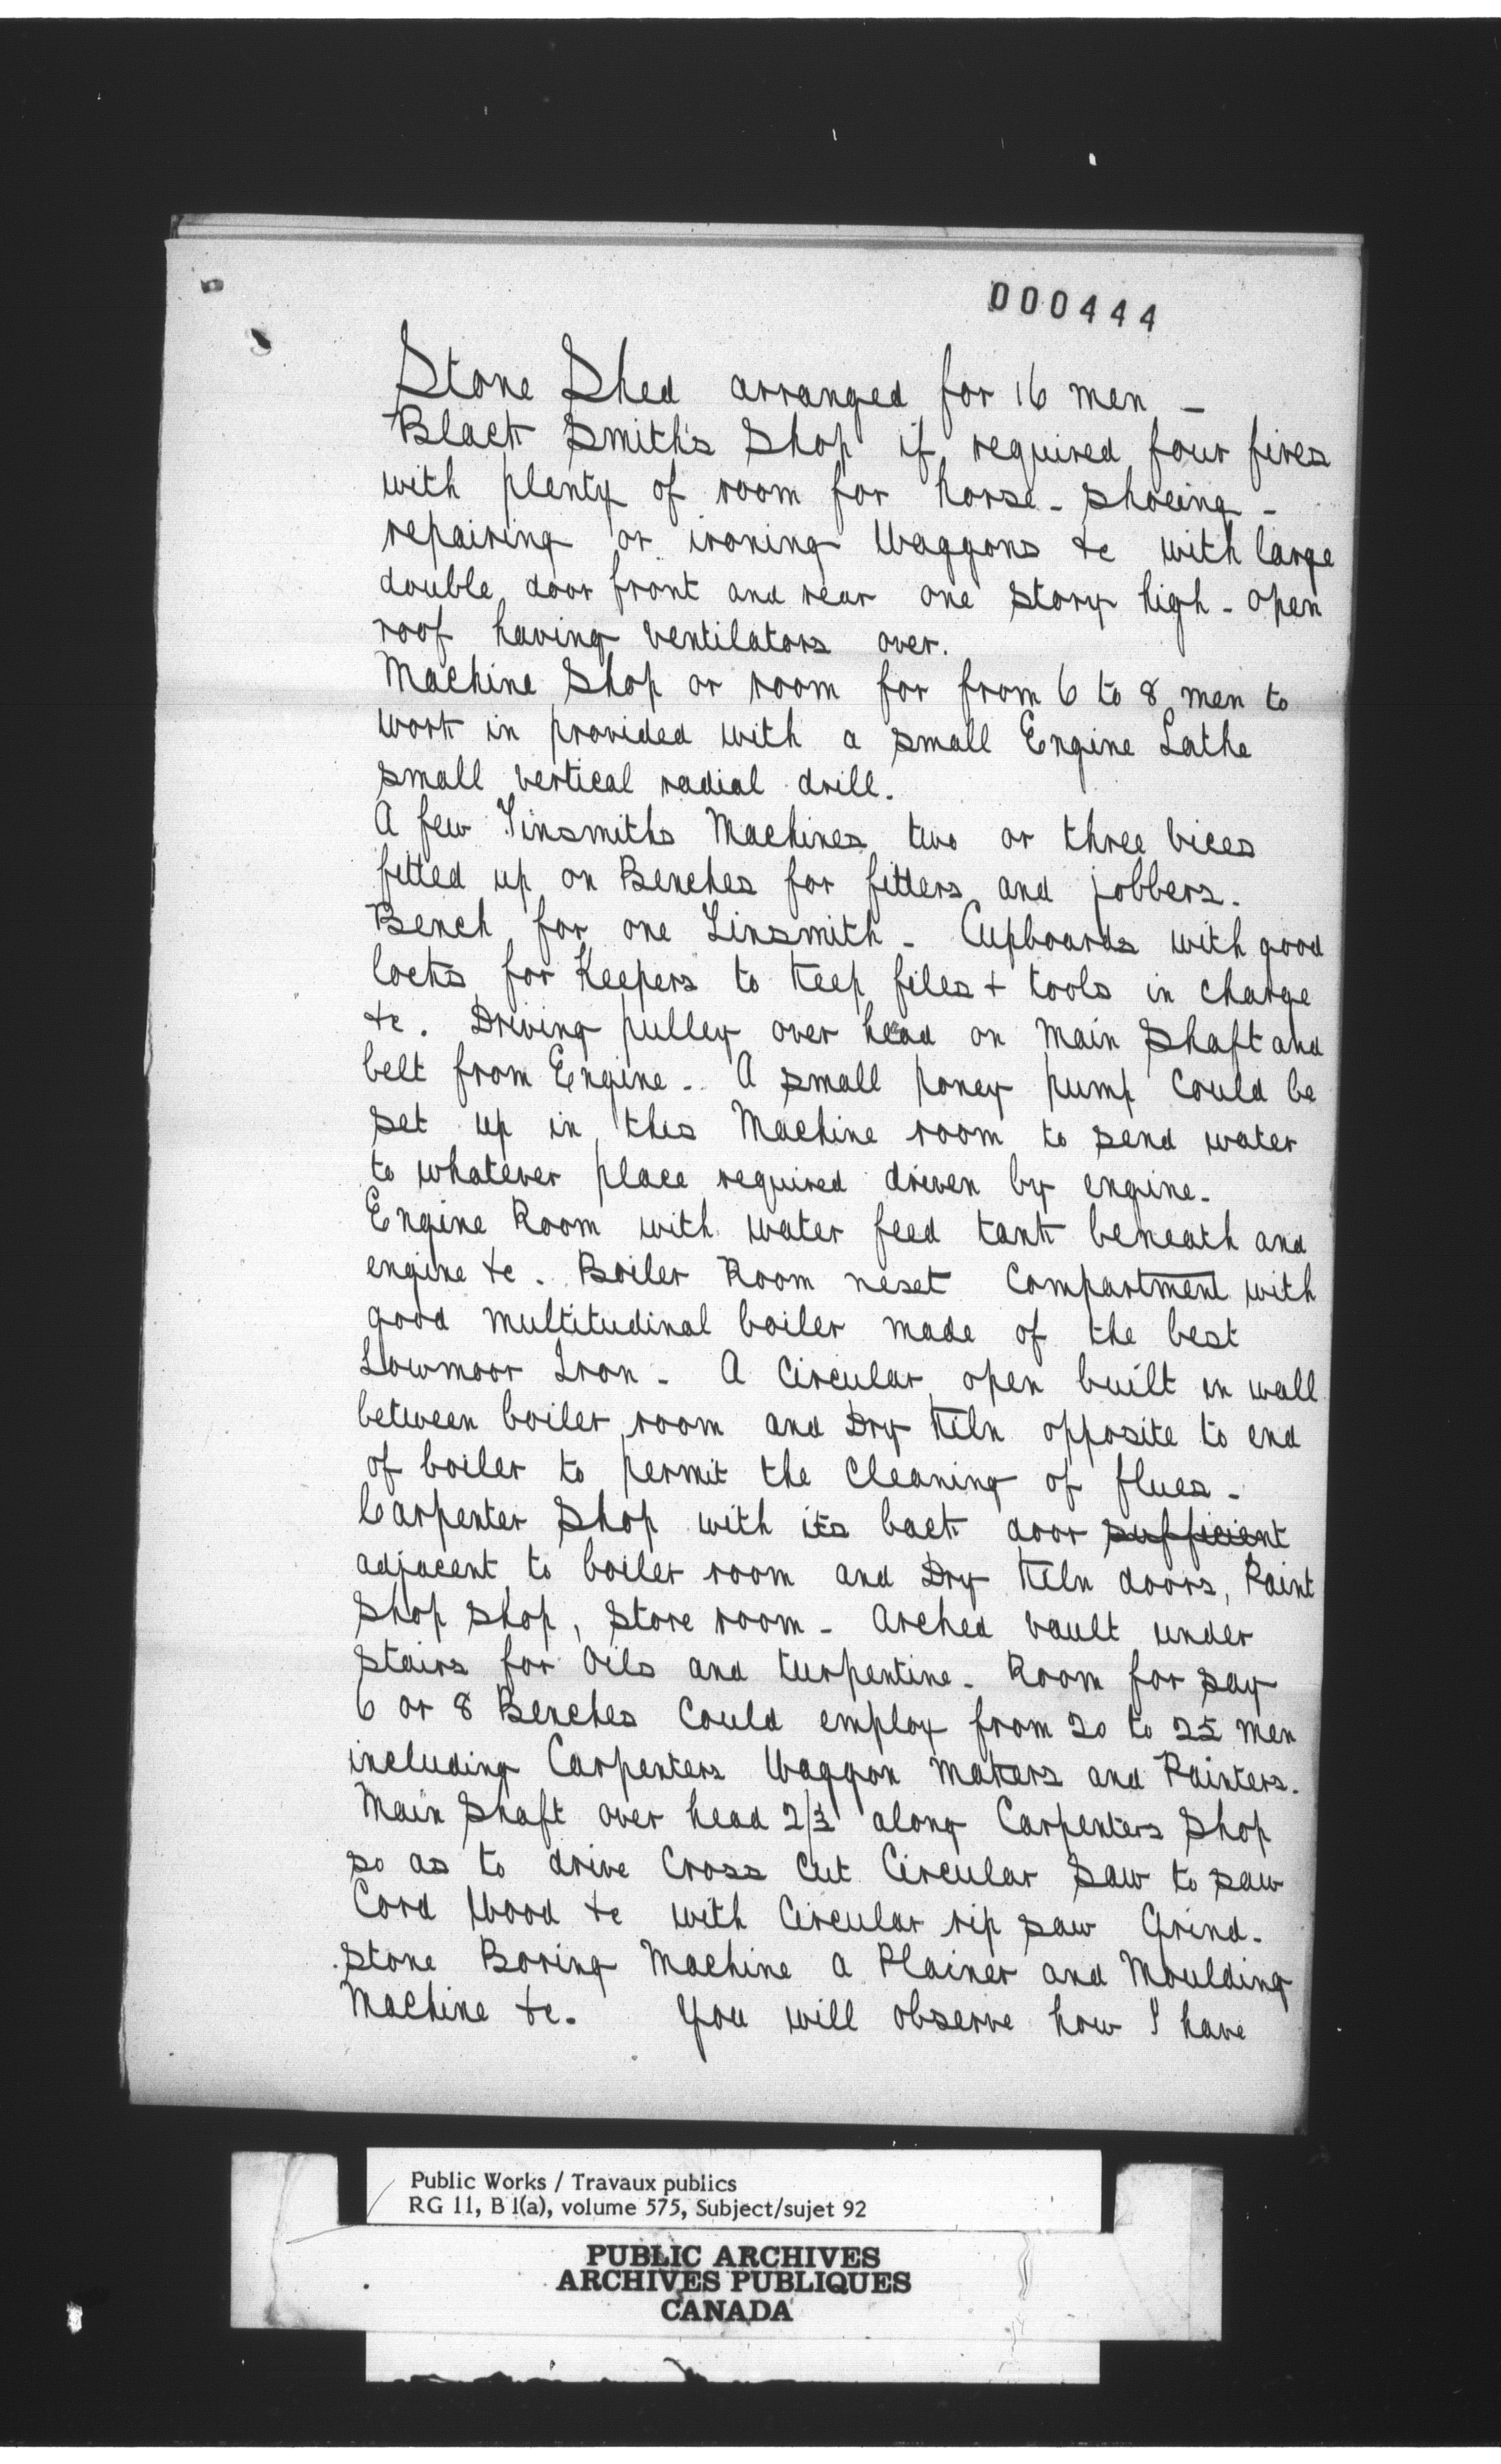 000444
Stone Shed arranged for 16 men -
Black Smith's Shop if required four fires
with plenty of room for horse - shoeing -
repairing or ironing Waggons &c with large
double door front and rear one story high - open
roof having ventilators over.
Machine Shop or room for from 6 to 8 men to
work in provided with a small Engine Lathe
small vertical radial drill.
A few Tinsmiths Machines two or three vices
fitted up on Benches for fitters and jobbers.
Bench for one Tinsmith - Cupboards with good
locks for Keepers to Keep files + tools in charge
&c. Driving pulley over head on Main Shaft and
belt from Engine - A small poney pump could be
set up in this Machine room to send water
to whatever place required driven by engine -
Engine Room with water feed tank beneath and
engine &c. Boiler Room next Compartment with
good multitudinal boiler made of the best
Lowmoor Iron - A Circular open built in wall
between boiler room and Dry Kiln opposite to end
of boiler to permit the cleaning of flues -
Carpenter Shop with its back door sufficient
adjacent to boiler room and Dry Kiln doors, Paint
Shop Shop, Store room - Arched vault under
Stairs for Oils and turpentine - Room for say
6 or 8 Benches Could employ from 20 to 25 men
including Carpenters Waggon Makers and Painters.
Main Shaft over head 2/3 along Carpenters Shop
so as to drive Cross Cut Circular Saw to saw
Cord Wood &c with Circular rip saw Grind-
stone Boring Machine a Plainer and Moulding
Machine &c. You will observe how I have
Public Works / Travaux publics
RG 11, B 1(a), volume 575, Subject/sujet 92
PUBLIC ARCHIVES
ARCHIVES PUBLIQUES
CANADA